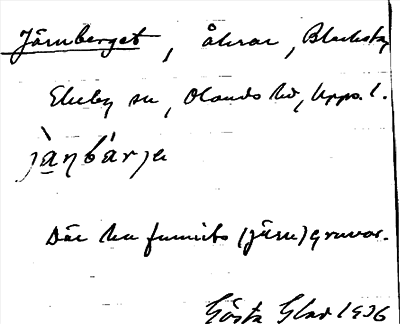 Järnberget, åkrar, Blacksta,
Ekeby sn, Olands hd, Upps. l.
jàṇbárjə
Där ha funnits (järn)gruvor.
Gösta Glad 1936